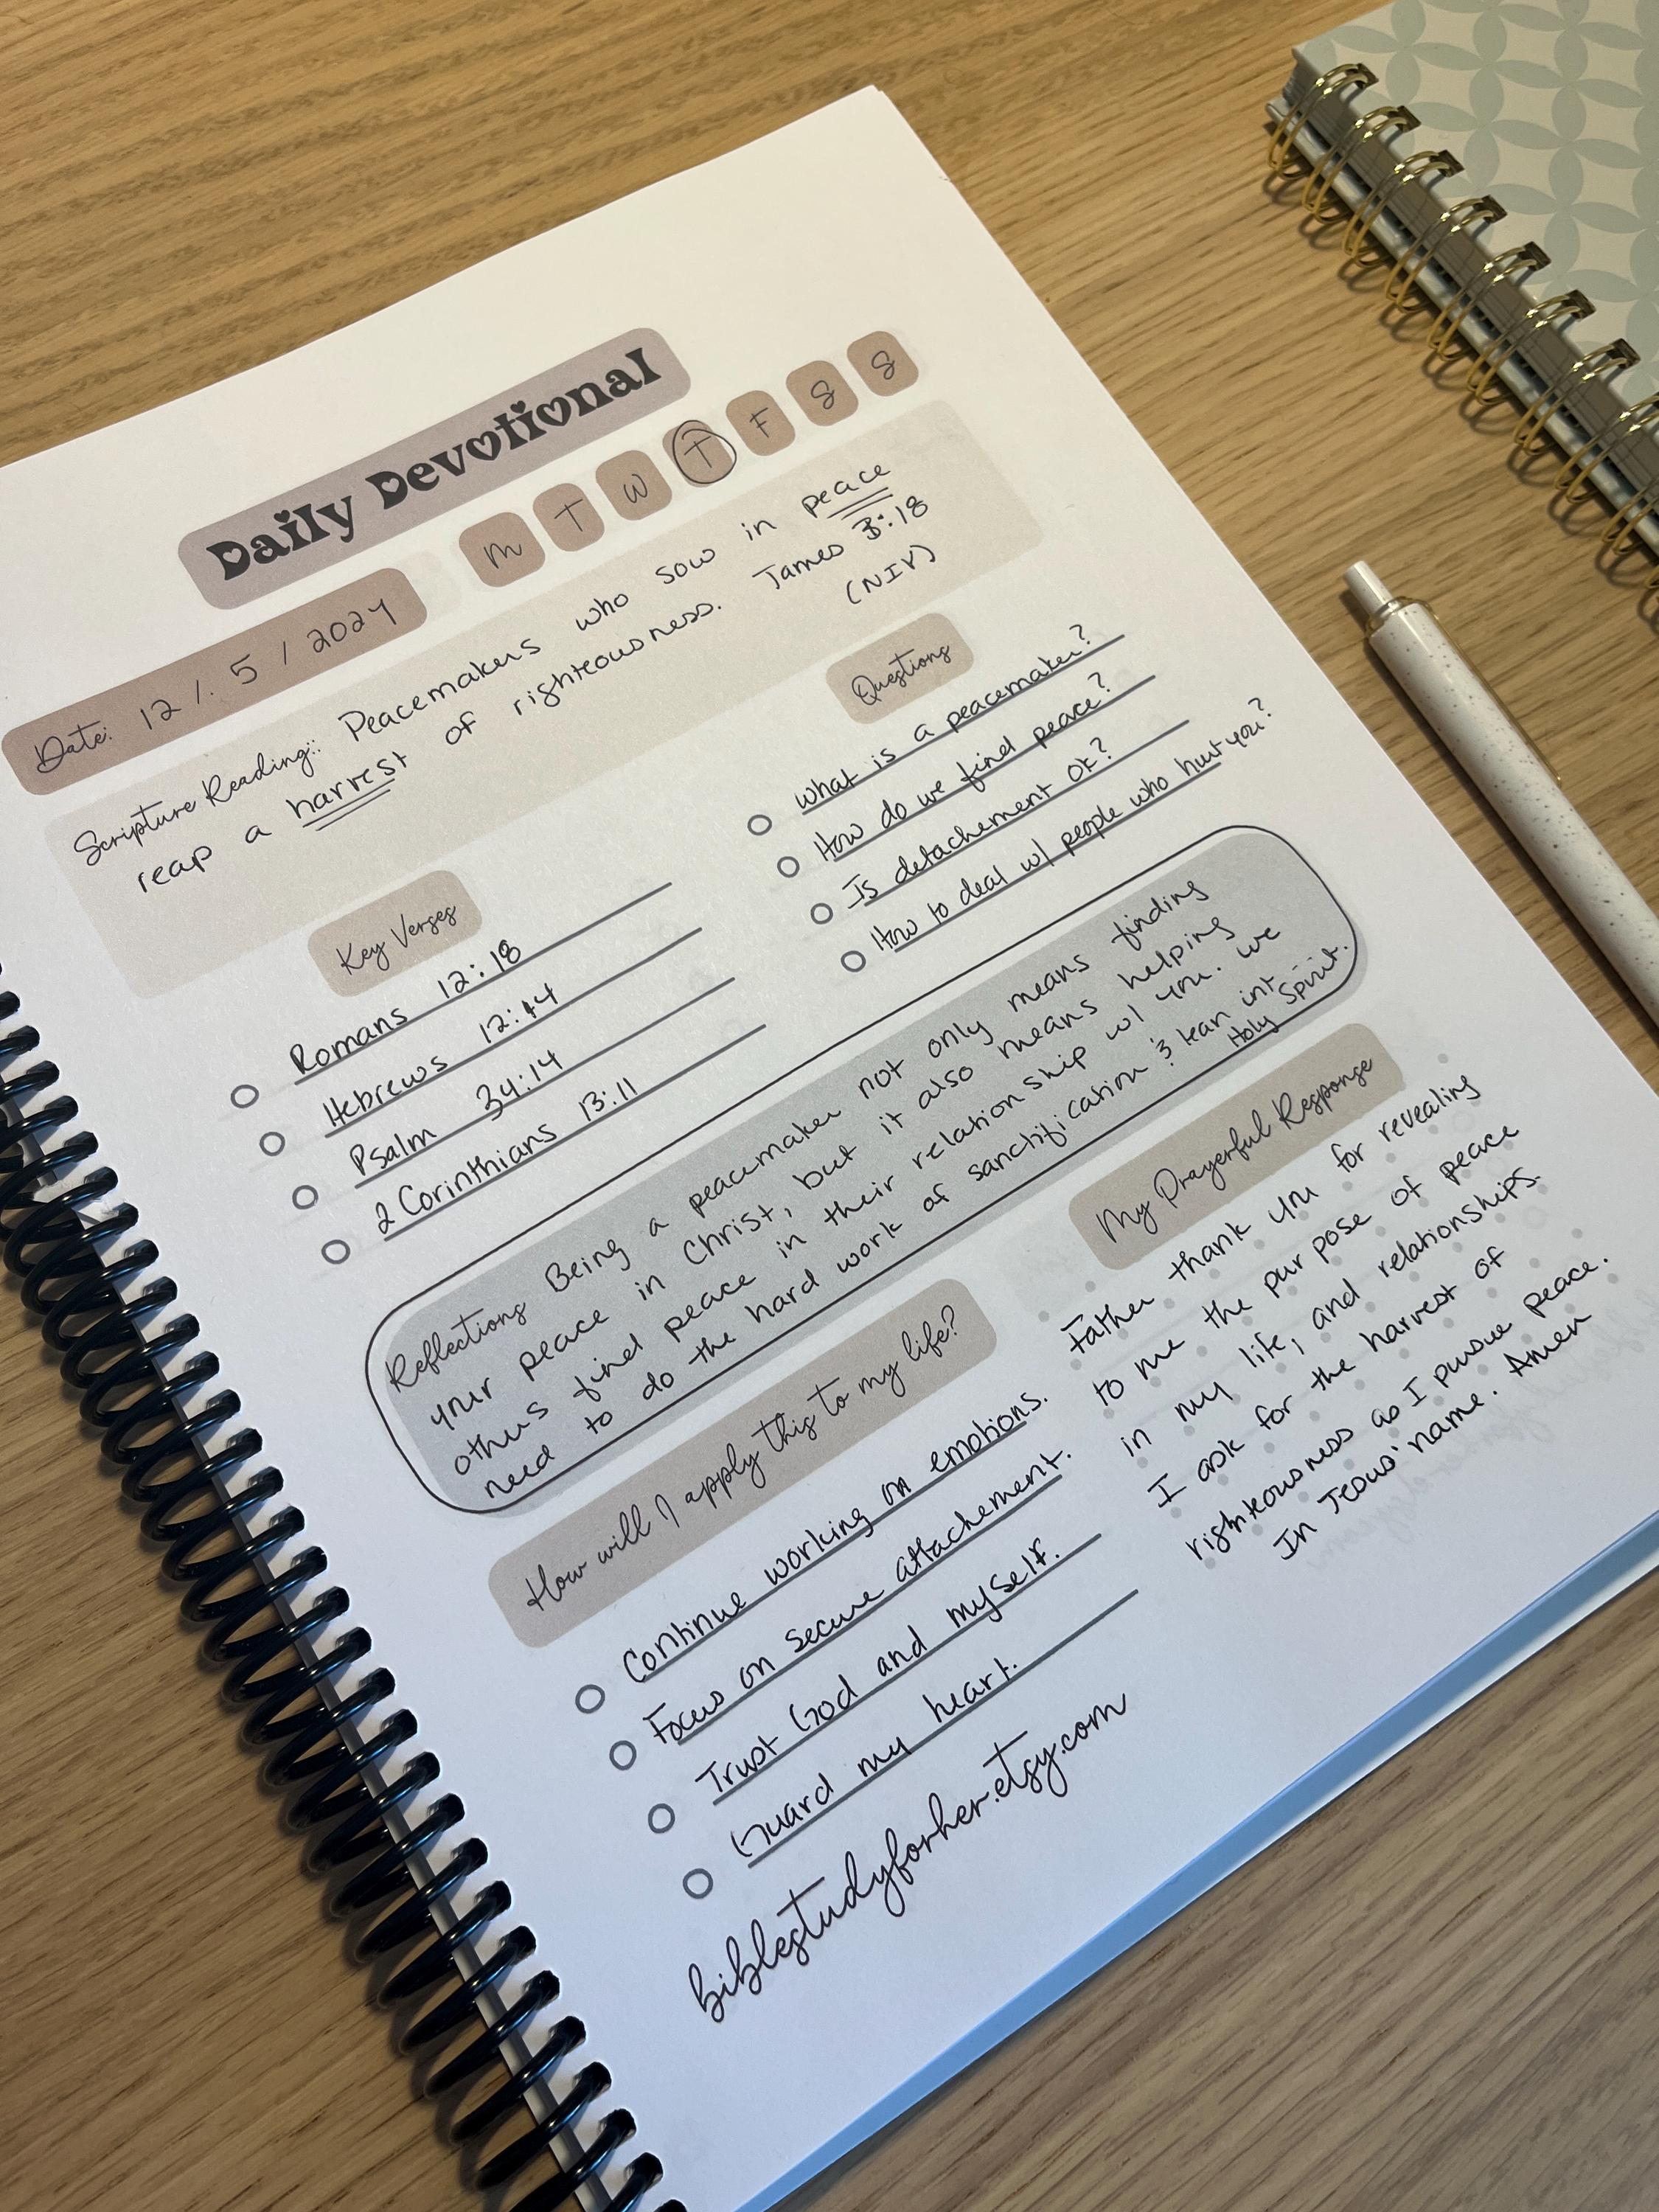 Daily Devotional
Date: 12 / 5 / 2024 M T W T F S S
Scripture Reading: Peacemakers who sow in peace
reap a harvest of righteousness. James 3:18
(NIV)
Key Verses
Romans 12:18
Hebrews 12:14
Psalm 34:14
2 Corinthians 13:11
Questions
What is a peacemaker?
How do we find peace?
Is detachement ok?
How to deal w/ people who hurt you?
Reflections Being a peacemaker not only means finding
your peace in Christ, but it also means helping
others find peace in their relationship w/ you. we
need to do the hard work of sanctification & lean into
Holy Spirit.
How will I apply this to my life?
Continue working on emotions.
Focus on secure attachement.
Trust God and myself.
Guard my heart.
My Prayerful Response
Father thank you for revealing
to me the purpose of peace
in my life, and relationships.
I ask for the harvest of
righteousness as I pursue peace.
In Jesus' name. Amen
biblestudyforher.etsy.com